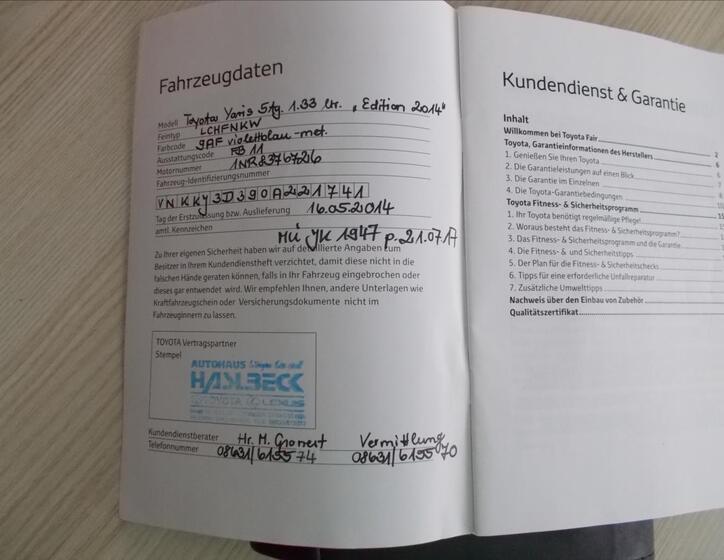 Fahrzeugdaten
Modell Toyota Yaris 5tg. 1.33 ltr. "Edition 2014"
Feintyp LCHFNKW
Farbcode 9AF violettblau-met.
Ausstattungscode FB11
Motornummer 1NR8376726
Fahrzeug-Identifizierungsnummer
VNKKY3D390A221741
Tag der Erstzulassung bzw. Auslieferung 16.05.2014
amtl. Kennzeichen MÜ JK 1947 p. 21.07.17
Zu Ihrer eigenen Sicherheit haben wir auf detaillierte Angaben zum
Besitzer in Ihrem Kundendienstheft verzichtet, damit diese nicht in die
falschen Hände geraten können, falls in Ihr Fahrzeug eingebrochen oder
dieses gar entwendet wird. Wir empfehlen Ihnen, andere Unterlagen wie
Kraftfahrzeugschein oder Versicherungsdokumente nicht im
Fahrzeuginnern zu lassen.
TOYOTA Vertragspartner
Stempel
AUTOHAUS
HASLBECK
TOYOTA LEXUS
Kundendienstberater Hr. M. Gronert Vermittlung
Telefonnummer 08631/615574 08631/615570
Kundendienst & Garantie
Inhalt
Willkommen bei Toyota Fair 2
Toyota, Garantieinformationen des Herstellers 6
1. Genießen Sie Ihren Toyota 6
2. Die Garantieleistungen auf einen Blick
3. Die Garantie im Einzelnen
4. Die Toyota-Garantiebedingungen
Toyota Fitness- & Sicherheitsprogramm
1. Ihr Toyota benötigt regelmäßige Pflege!
2. Woraus besteht das Fitness- & Sicherheitsprogramm?
3. Das Fitness- & Sicherheitsprogramm und die Garantie
4. Die Fitness- & und Sicherheitstipps
5. Der Plan für die Fitness- & Sicherheitschecks
6. Tipps für eine erforderliche Unfallreparatur
7. Zusätzliche Umwelttipps
Nachweis über den Einbau von Zubehör
Qualitätszertifikat